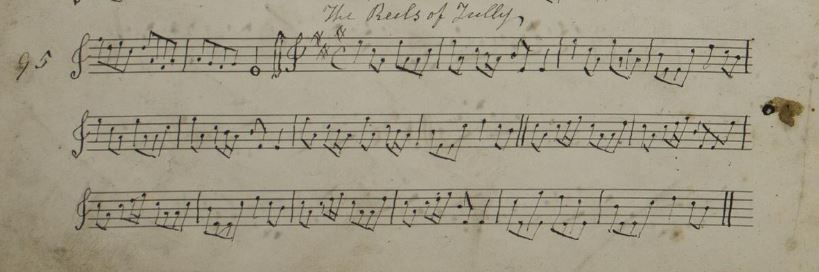 The Reels of Tully
95